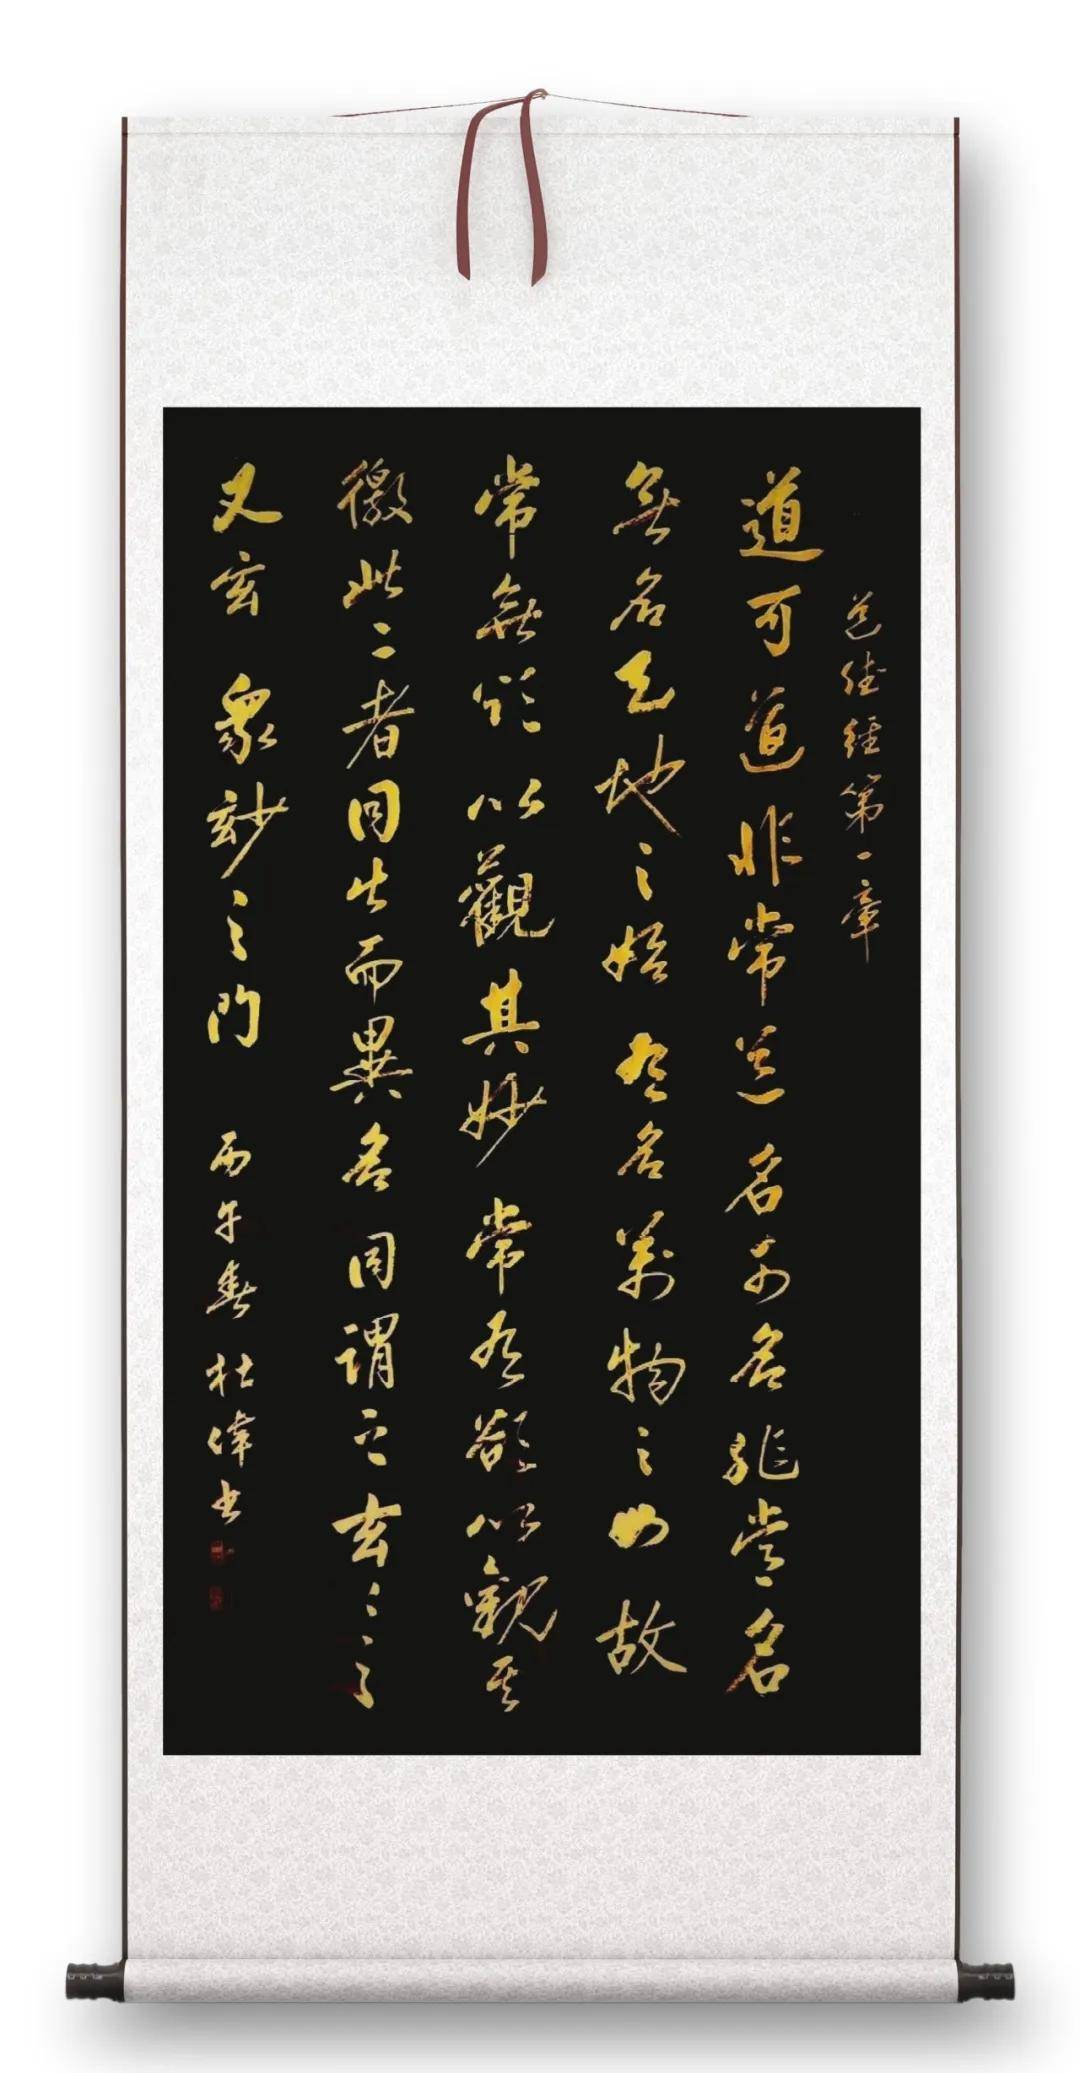 道德經第一章
道可道非常道名可名非常名
無名天地之始有名萬物之母故
常無欲以觀其妙常有欲以觀其
徼此二者同出而異名同謂之玄〻之
又玄 衆玅之門 丙午春 杜偉書